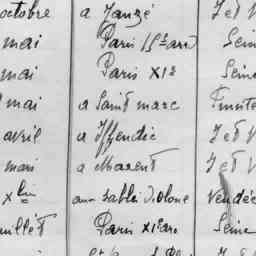 octobre a Janzé I et V
mai Paris 15e arrt Seine
mai Paris XIe Seine
mai a Saint marc Finiste
avril a Iffendic I et V
mars a Maxent I et V
Xbre aux sables d'olone Vendée
juillet Paris XIe arr Seine